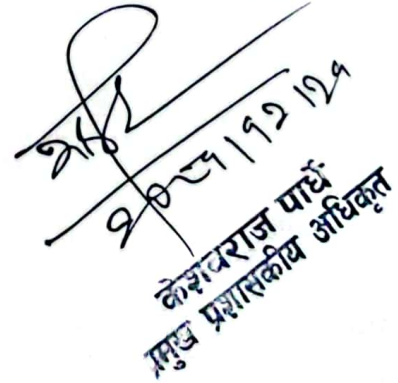 २०८१।१२।२१
केशवराज पार्धे
प्रमुख प्रशासकीय अधिकृत